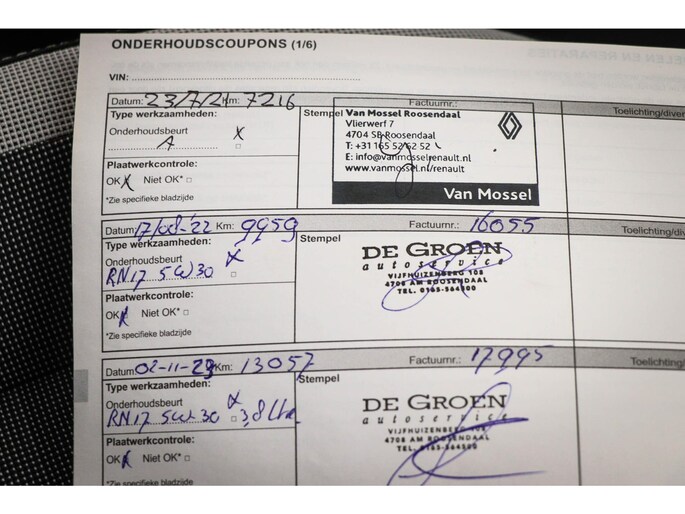 ONDERHOUDSCOUPONS (1/6)
VIN:
Datum: 23/7/21 Km: 7216 Factuurnr.: Toelichting/diver
Type werkzaamheden:
Onderhoudsbeurt X
A
Plaatwerkcontrole:
OK X Niet OK*
*Zie specifieke bladzijde
Stempel
Van Mossel Roosendaal
Vlierwerf 7
4704 SB Roosendaal
T: +31 165 52 52 52
E: info@vanmosselrenault.nl
www.vanmossel.nl/renault
Van Mossel
Datum: 17/08-'22 Km: 9959 Factuurnr.: 16055 Toelichting/div
Type werkzaamheden:
Onderhoudsbeurt X
RN17 5W30
Plaatwerkcontrole:
OK X Niet OK*
*Zie specifieke bladzijde
Stempel
DE GROEN
autoservice
VIJFHUIZENBERG 108
4708 AM ROOSENDAAL
TEL. 0165-564500
Datum: 02-11-23 Km: 13057 Factuurnr.: 17995 Toelichting/
Type werkzaamheden:
Onderhoudsbeurt X
RN17 5W30 3,8 Liter
Plaatwerkcontrole:
OK X Niet OK*
*Zie specifieke bladzijde
Stempel
DE GROEN
autoservice
VIJFHUIZENBERG 108
4708 AM ROOSENDAAL
TEL. 0165-564500